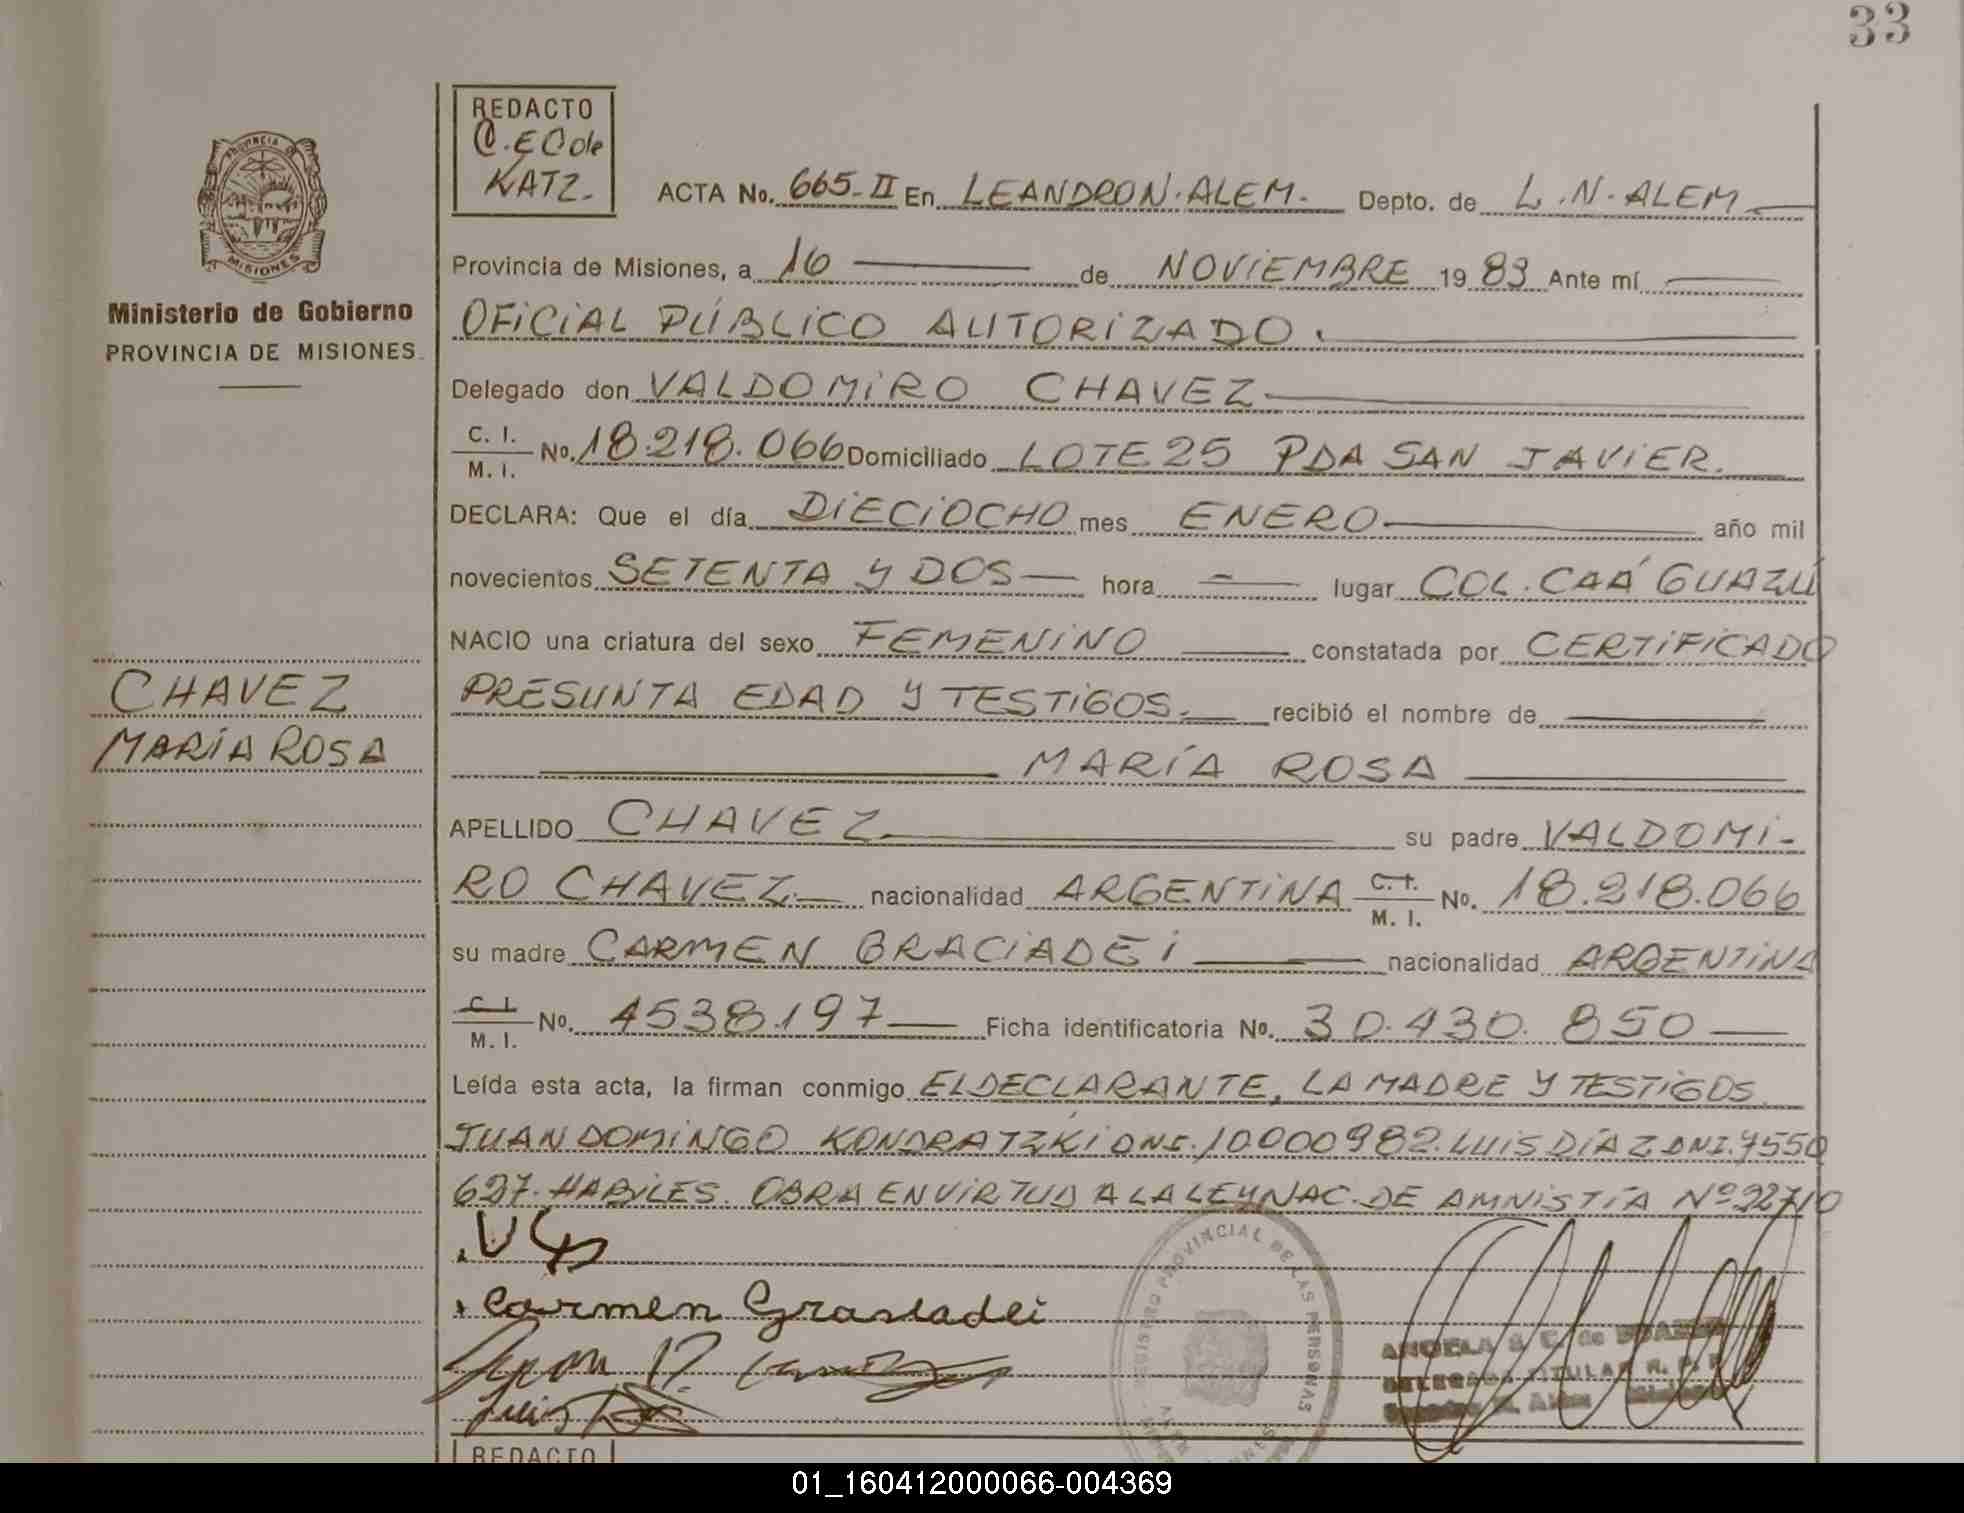 33
REDACTO
C.E.O de
KATZ.-
ACTA No. 665-II En LEANDRO N. ALEM.- Depto. de L.N. ALEM
PROVINCIA DE
MISIONES
Ministerio de Gobierno
PROVINCIA DE MISIONES
Provincia de Misiones, a 16 de NOVIEMBRE 1983 Ante mí
OFICIAL PÚBLICO AUTORIZADO.
Delegado don VALDOMIRO CHAVEZ
C. I.
M. I. No. 18.218.066 Domiciliado LOTE 25 PDA SAN JAVIER.
DECLARA: Que el día DIECIOCHO mes ENERO año mil
novecientos SETENTA Y DOS — hora — lugar COL. CAÁ GUAZÚ
NACIO una criatura del sexo FEMENINO constatada por CERTIFICADO
PRESUNTA EDAD Y TESTIGOS. recibió el nombre de
MARÍA ROSA
CHAVEZ
MARÍA ROSA
APELLIDO CHAVEZ su padre VALDOMI-
RO CHAVEZ.— nacionalidad ARGENTINA C. I. M. I. No. 18.218.066
su madre CARMEN GRACIADEI nacionalidad ARGENTINA
C. I.
M. I. No. 4538197 Ficha identificatoria No. 30.430.850
Leída esta acta, la firman conmigo EL DECLARANTE, LA MADRE Y TESTIGOS
JUAN DOMINGO KONDRATZKI DNI. 10000982. LUIS DÍAZ DNI. 7550
627. HABILES. OBRA EN VIRTUD A LA LEY NAC. DE AMNISTÍA Nº 22710
VCh
Carmen Grasiadei
Juan D.
Luis Díaz
REGISTRO PROVINCIAL DE LAS PERSONAS
ANGELA S. C. de
DELEGADA TITULAR R. P. P.
Leandro N. Alem Misiones
REDACTO
01_160412000066-004369